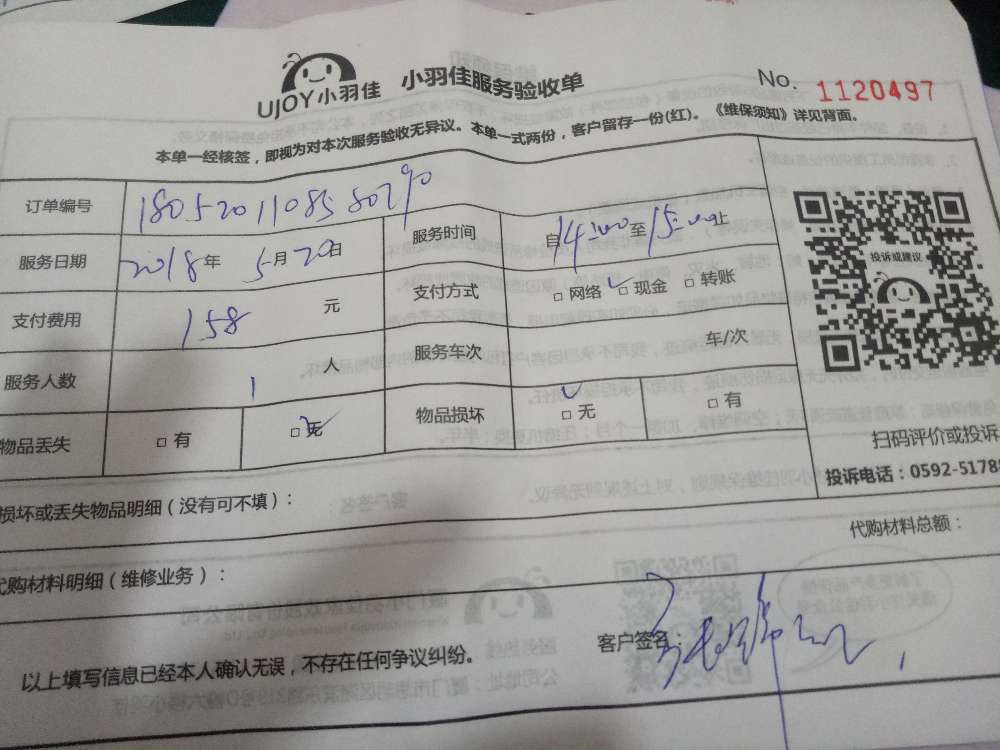 UJOY小羽佳 小羽佳服务验收单 No. 1120497
本单一经核签，即视为对本次服务验收无异议。本单一式两份，客户留存一份(红)。《维保须知》详见背面。
订单编号
服务日期 2018年 5月20日 服务时间 自14:00至15:00止
支付费用 158 元 支付方式 □网络 □现金 □转账
服务人数 1 人 服务车次 车/次
物品丢失 □有 □无 物品损坏 □无 □有
投诉或建议
扫码评价或投诉
投诉电话：0592-5178
损坏或丢失物品明细（没有可不填）：
代购材料明细（维修业务）： 代购材料总额：
以上填写信息已经本人确认无误，不存在任何争议纠纷。 客户签名：